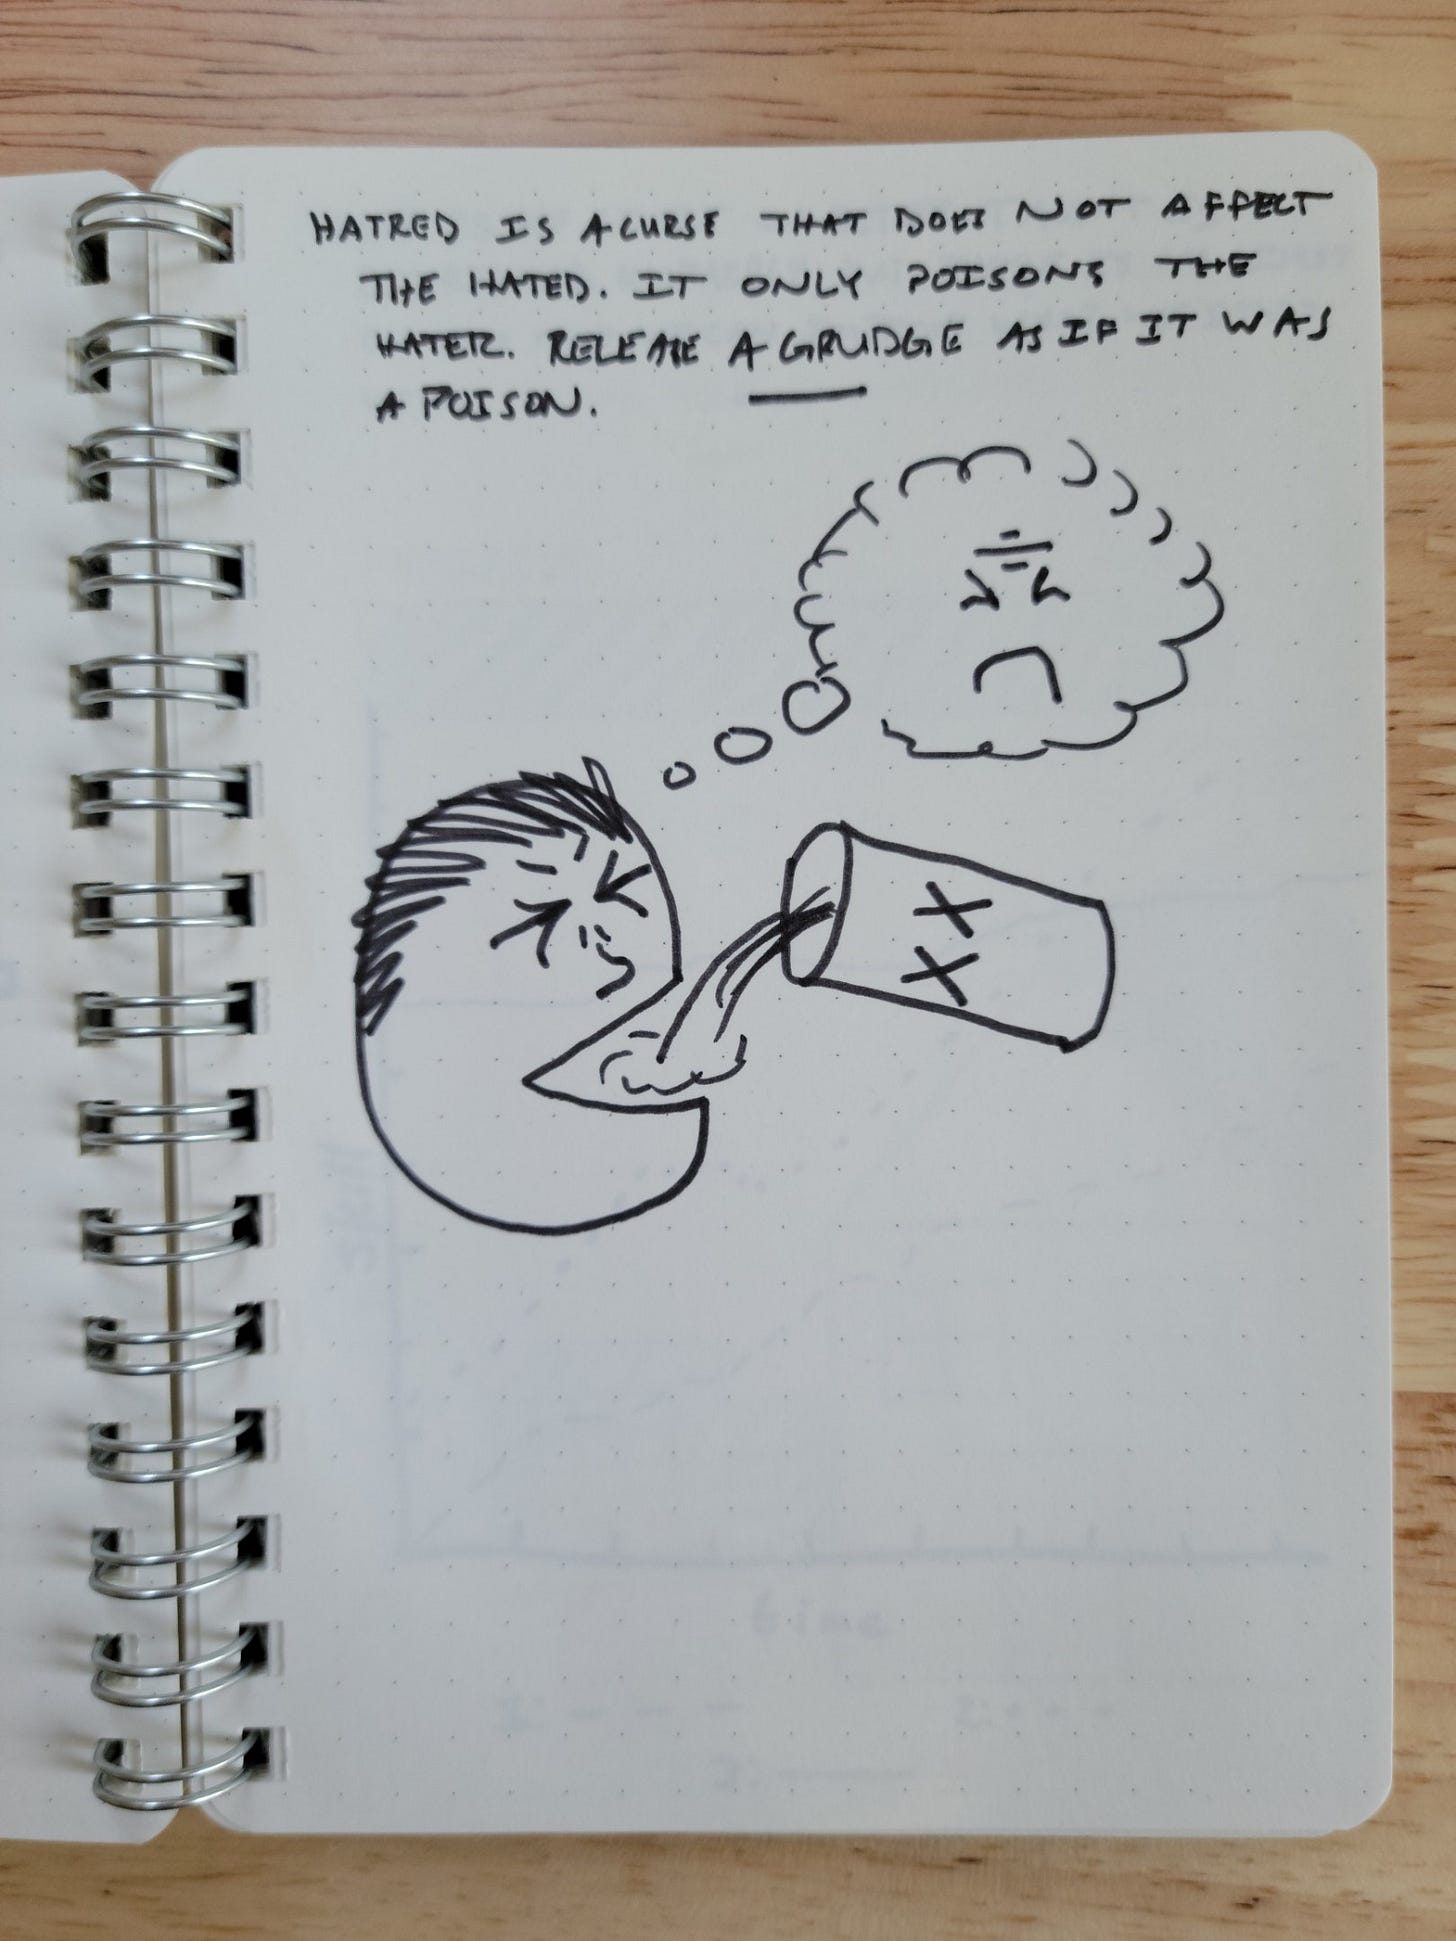 HATRED IS A CURSE THAT DOES NOT AFFECT
THE HATED. IT ONLY POISONS THE
HATER. RELEASE A GRUDGE AS IF IT WAS
A POISON.
X
X
time